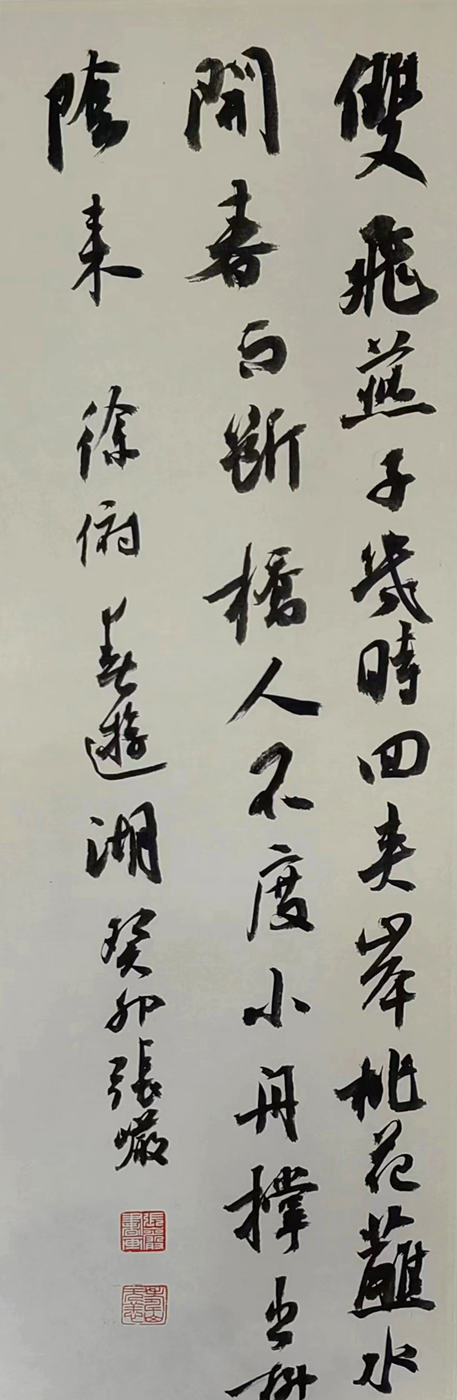 雙飛燕子幾時回夾岸桃花蘸水
開春雨斷橋人不度小舟撐出柳
陰來 徐俯春遊湖 癸卯張巖